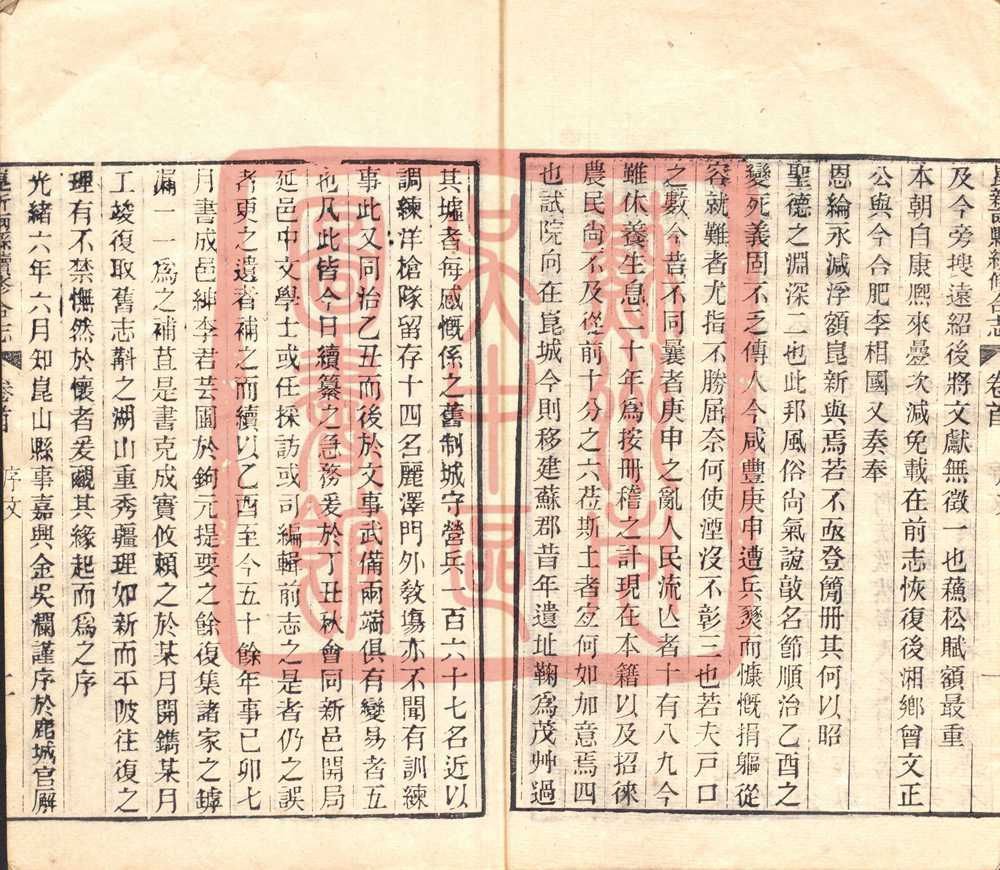 及今旁搜遠紹後將文獻無徵一也蘓松賦額最重
本朝自康熙來曡次減免載在前志恢復後湘鄉曾文正
公與今合肥李相國又奏奉
恩綸永減浮額崑新與焉若不亟登簡冊其何以昭
聖德之淵深二也此邦風俗尙氣誼敦名節順治乙酉之
變死義固不乏傳人今咸豐庚申遭兵燹而慷慨捐軀從
容就難者尤指不勝屈奈何使湮沒不彰三也若夫戸口
之數今昔不同曩者庚申之亂人民流亾者十有八九今
雖休養生息二十年爲按冊稽之計現在本籍以及招徠
農民尙不及從前十分之六莅斯土者宐何如加意焉四
也試院向在崑城今則移建蘇郡昔年遺址鞠爲茂艸過
其墟者每感慨係之舊制城守營兵一百六十七名近以
調練洋槍隊留存十四名麗澤門外敎塲亦不聞有訓練
事此又同治乙丑而後於文事武備兩端俱有變易者五
也凡此皆今日續纂之急務爰於丁丑秋會同新邑開局
延邑中文學士或任採訪或司編輯前志之是者仍之誤
者更之遺者補之而續以乙酉至今五十餘年事已卯七
月書成邑紳李君芸圃於鉤元提要之餘復集諸家之鏬
漏一一爲之補苴是書克成實攸頼之於某月開鐫某月
工竣復取舊志斠之湖山重秀疆理如新而平陂往復之
理有不禁憮然於懷者爰覼其緣起而爲之序
光緒六年六月知崑山縣事嘉興金吳瀾謹序於鹿城官廨
崑新兩縣續修合志
卷首
序文
二
崑新兩縣續修合志
卷首
蘇州市
吴中區
圖書館